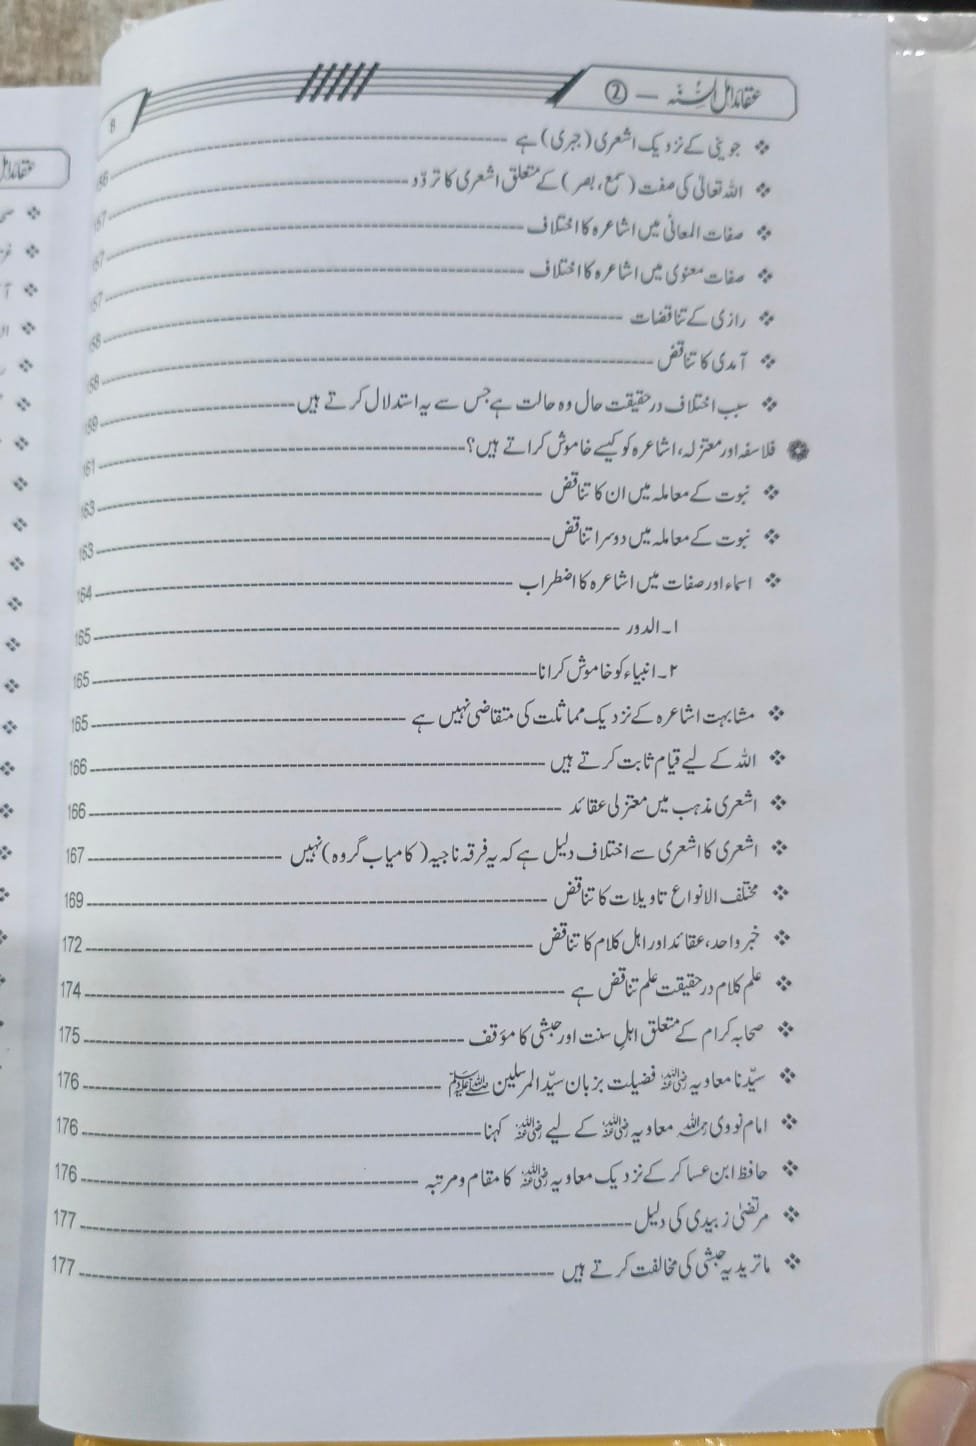 عقائد اہل السُّنّہ — 2
8
❖ جوینی کے نزدیک اشعری (جبری) ہے
❖ اللہ تعالیٰ کی صفت (سمع، بصر) کے متعلق اشعری کا تردّد
❖ صفات المعانی میں اشاعرہ کا اختلاف
❖ صفات معنوی میں اشاعرہ کا اختلاف
❖ رازی کے تناقضات
❖ آمدی کا تناقض
❖ سبب اختلاف درحقیقت حال وہ حالت ہے جس سے یہ استدلال کرتے ہیں
فلاسفہ اور معتزلہ، اشاعرہ کو کیسے خاموش کراتے ہیں؟ 161
❖ نبوت کے معاملہ میں ان کا تناقض 163
❖ نبوت کے معاملہ میں دوسرا تناقض 163
❖ اسماء اور صفات میں اشاعرہ کا اضطراب 164
۱۔ الدور 165
۲۔ انبیاء کو خاموش کرانا 165
❖ مشابہت اشاعرہ کے نزدیک مماثلت کی متقاضی نہیں ہے 165
❖ اللہ کے لیے قیام ثابت کرتے ہیں 166
❖ اشعری مذہب میں معتزلی عقائد 166
❖ اشعری کا اشعری سے اختلاف دلیل ہے کہ یہ فرقہ ناجیہ (کامیاب گروہ) نہیں 167
❖ مختلف الانواع تاویلات کا تناقض 169
❖ خبر واحد، عقائد اور اہل کلام کا تناقض 172
❖ علم کلام درحقیقت علم تناقض ہے 174
❖ صحابہ کرام کے متعلق اہلِ سنت اور حبشی کا مؤقف 175
❖ سیّدنا معاویہ رضی اللہ عنہ فضیلت بزبان سیّد المرسلین ﷺ 176
❖ امام نووی رحمہ اللہ معاویہ رضی اللہ عنہ کے لیے رضی اللہ عنہ کہنا 176
❖ حافظ ابن عساکر کے نزدیک معاویہ رضی اللہ عنہ کا مقام و مرتبہ 176
❖ مرتضیٰ زبیدی کی دلیل 177
❖ ماتریدیہ حبشی کی مخالفت کرتے ہیں 177